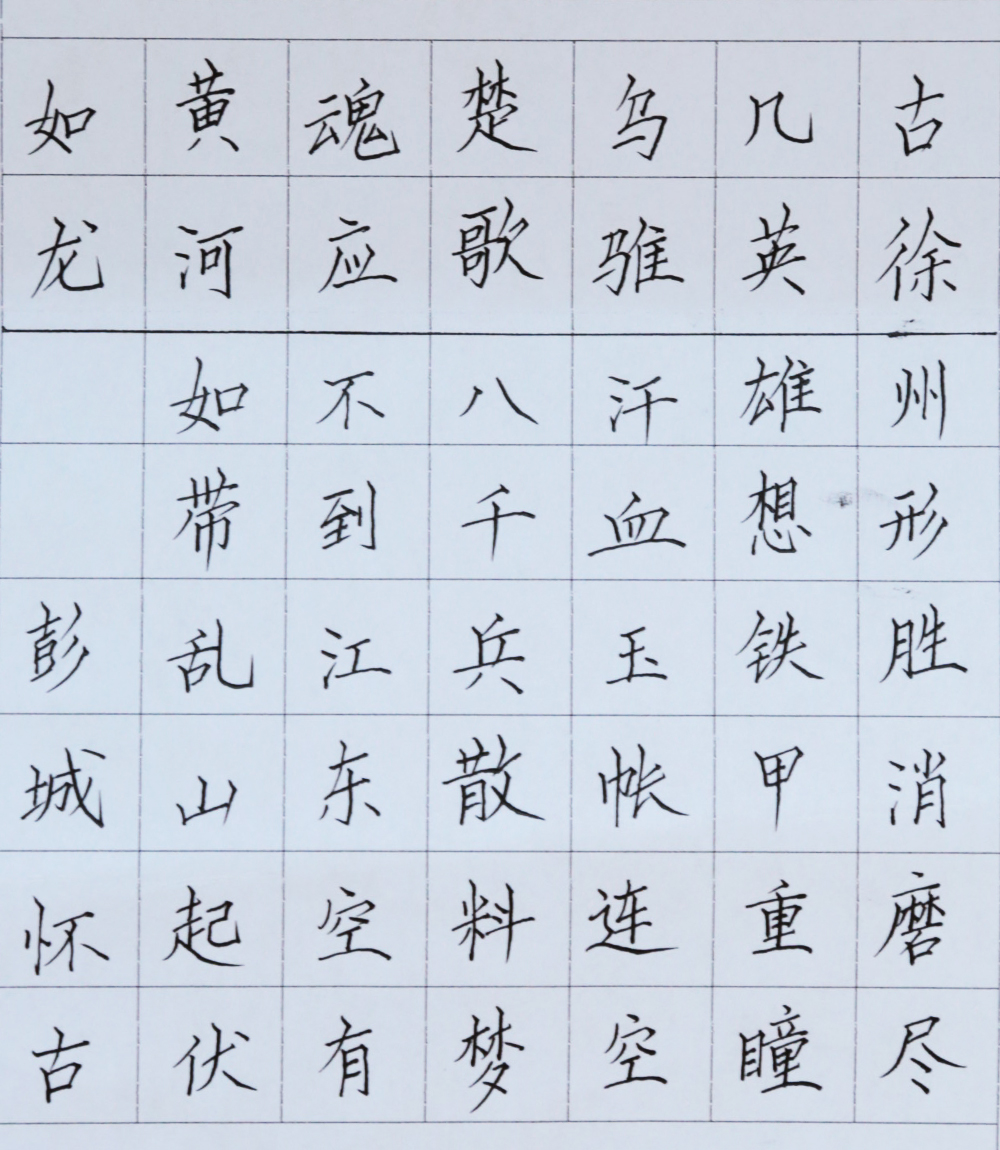 古徐州形胜消磨尽
几英雄想铁甲重瞳
乌骓汗血玉帐连空
楚歌八千兵散料梦
魂应不到江东空有
黄河如带乱山起伏
如龙 彭城怀古